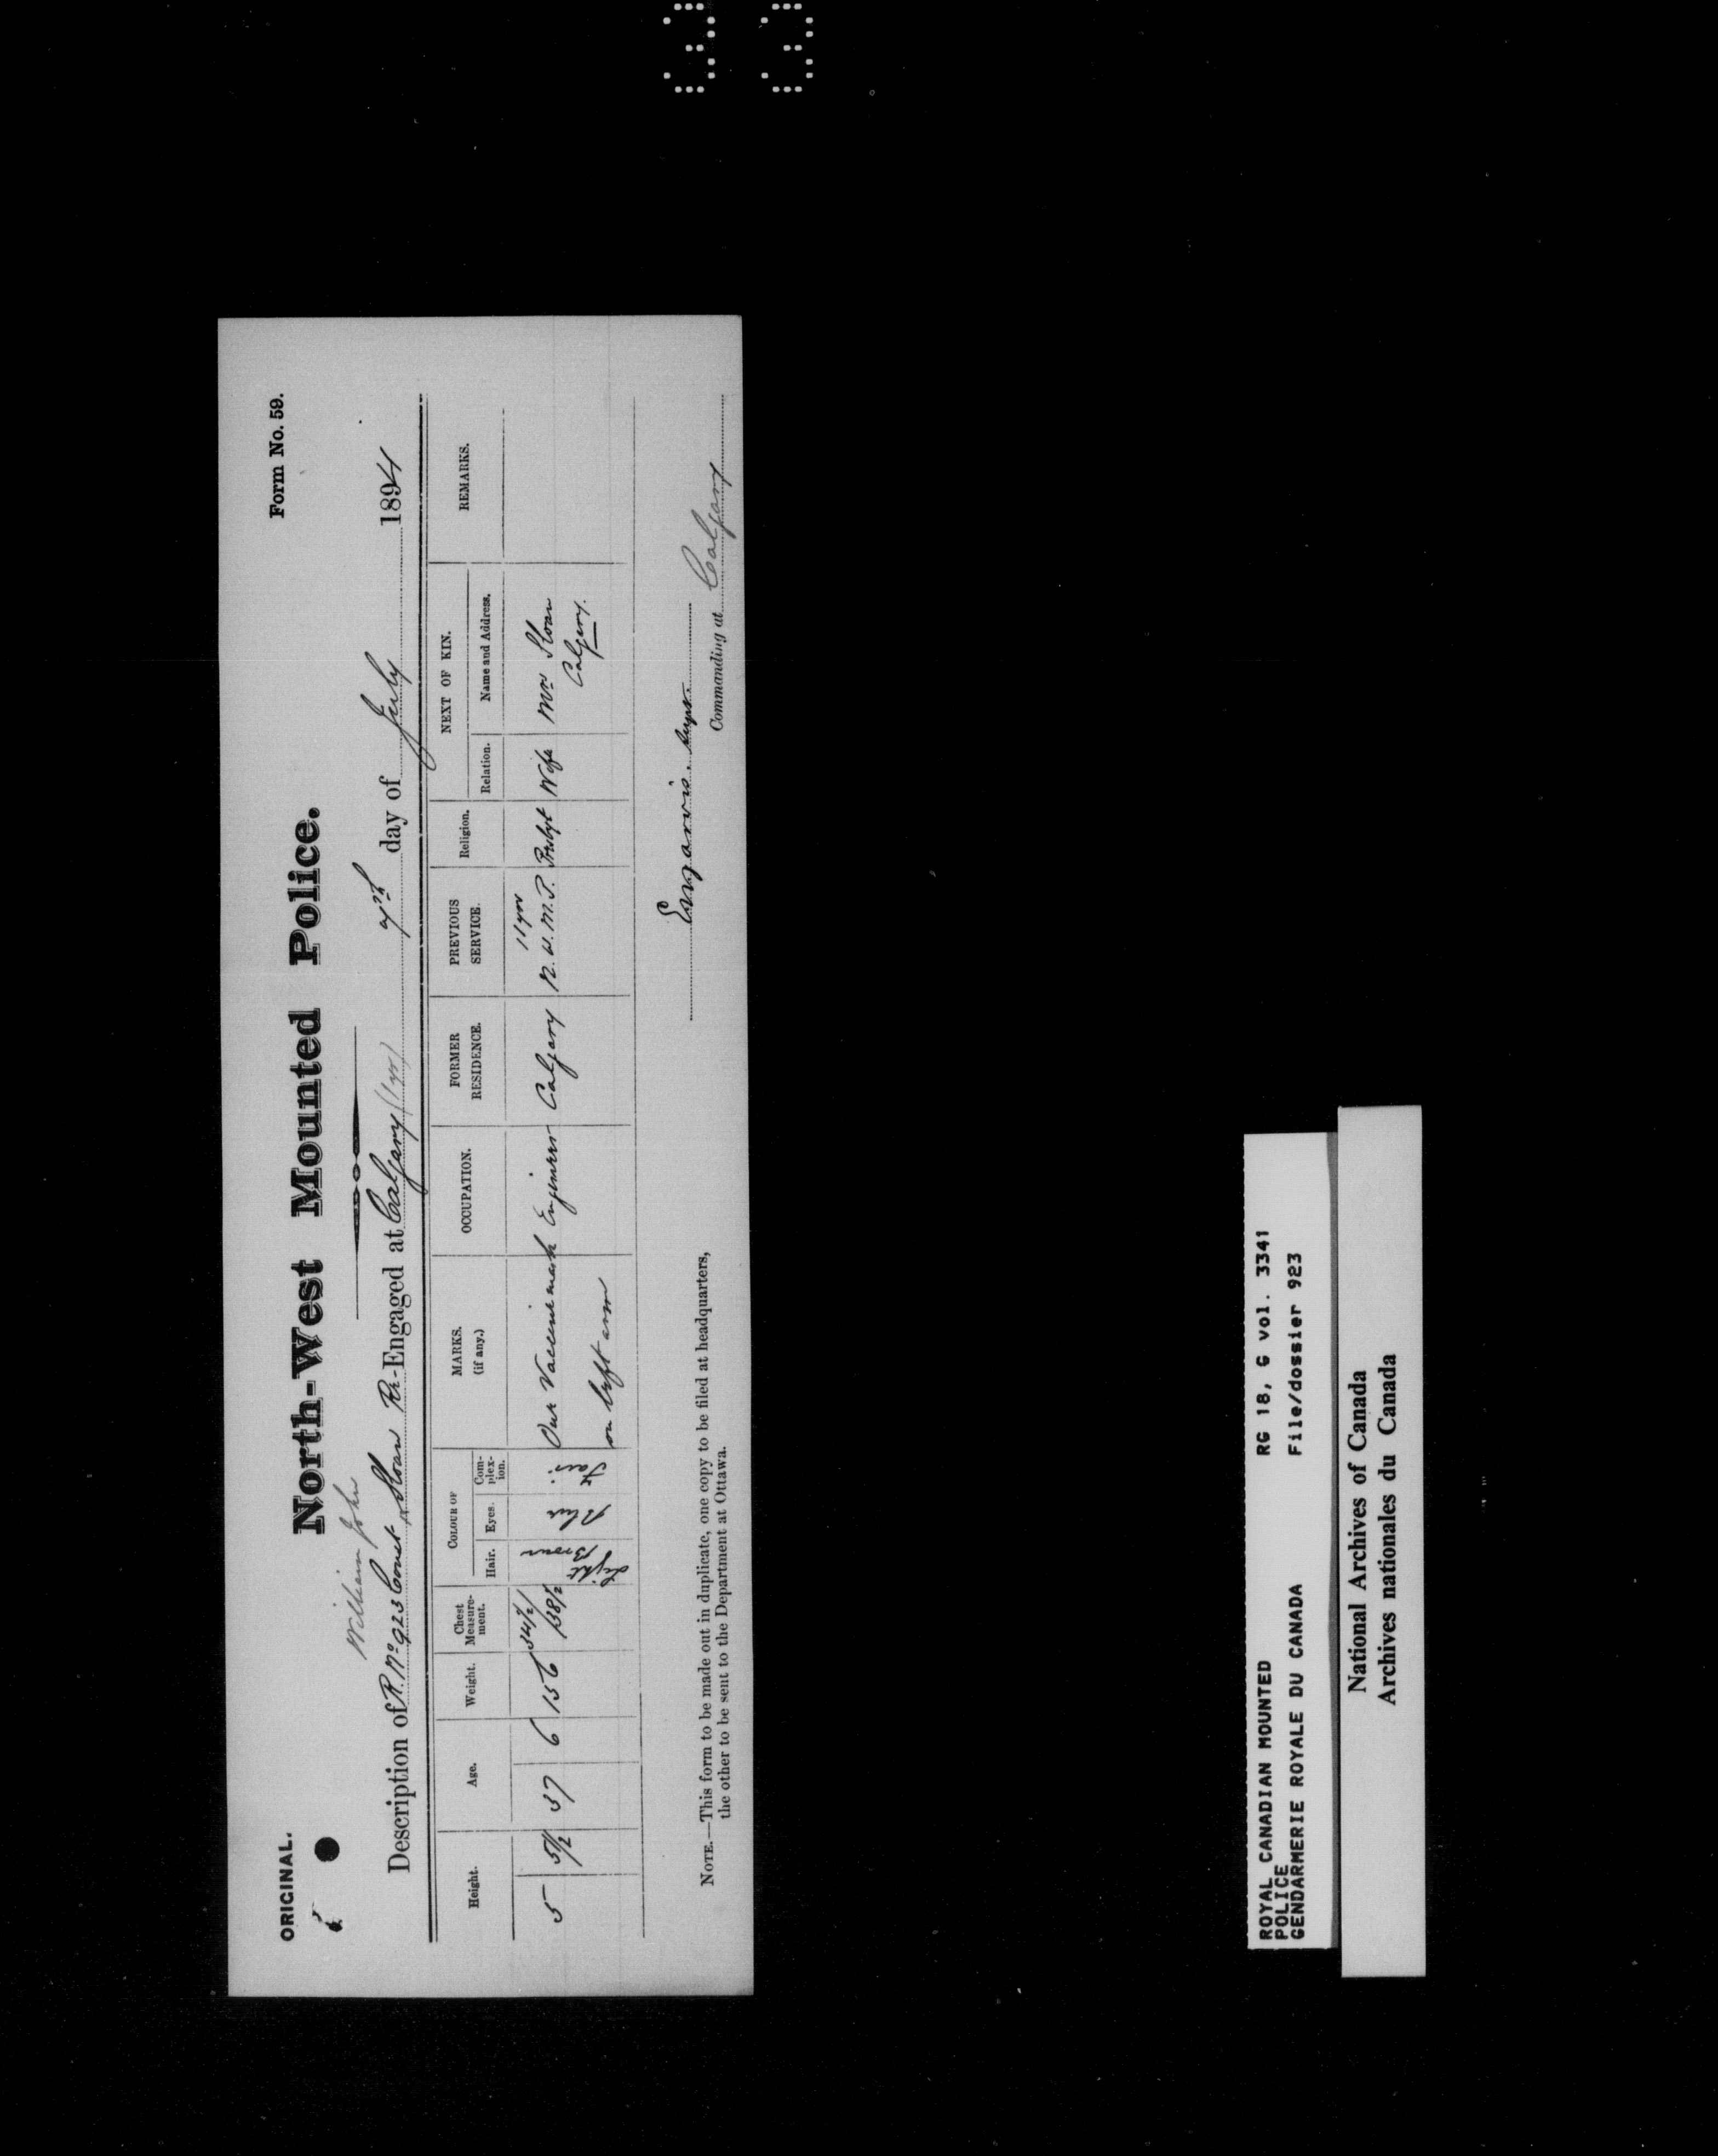 ORIGINAL.
Form No. 59.
North-West Mounted Police.
William John
Description of R. No 923 Const Sloan Re-Engaged at Calgary (1 yr) 7th day of July 1894
Height. Age. Weight. Chest Measure-ment. COLOUR OF Hair. Eyes. Com-plex-ion. MARKS. (if any.) OCCUPATION. FORMER RESIDENCE. PREVIOUS SERVICE. Religion. NEXT OF KIN. Relation. Name and Address. REMARKS.
5 5½ 37 6 156 34½/38½ Light Brown Blue Fair One Vaccine mark on left arm Engineer Calgary 11 yrs N.W.M.P. Presbyt Wife Mrs Sloan Calgary.
Supt.
Commanding at Calgary
NOTE.—This form to be made out in duplicate, one copy to be filed at headquarters,
the other to be sent to the Department at Ottawa.
ROYAL CANADIAN MOUNTED RG 18, G vol. 3341
POLICE
GENDARMERIE ROYALE DU CANADA File/dossier 923
National Archives of Canada
Archives nationales du Canada